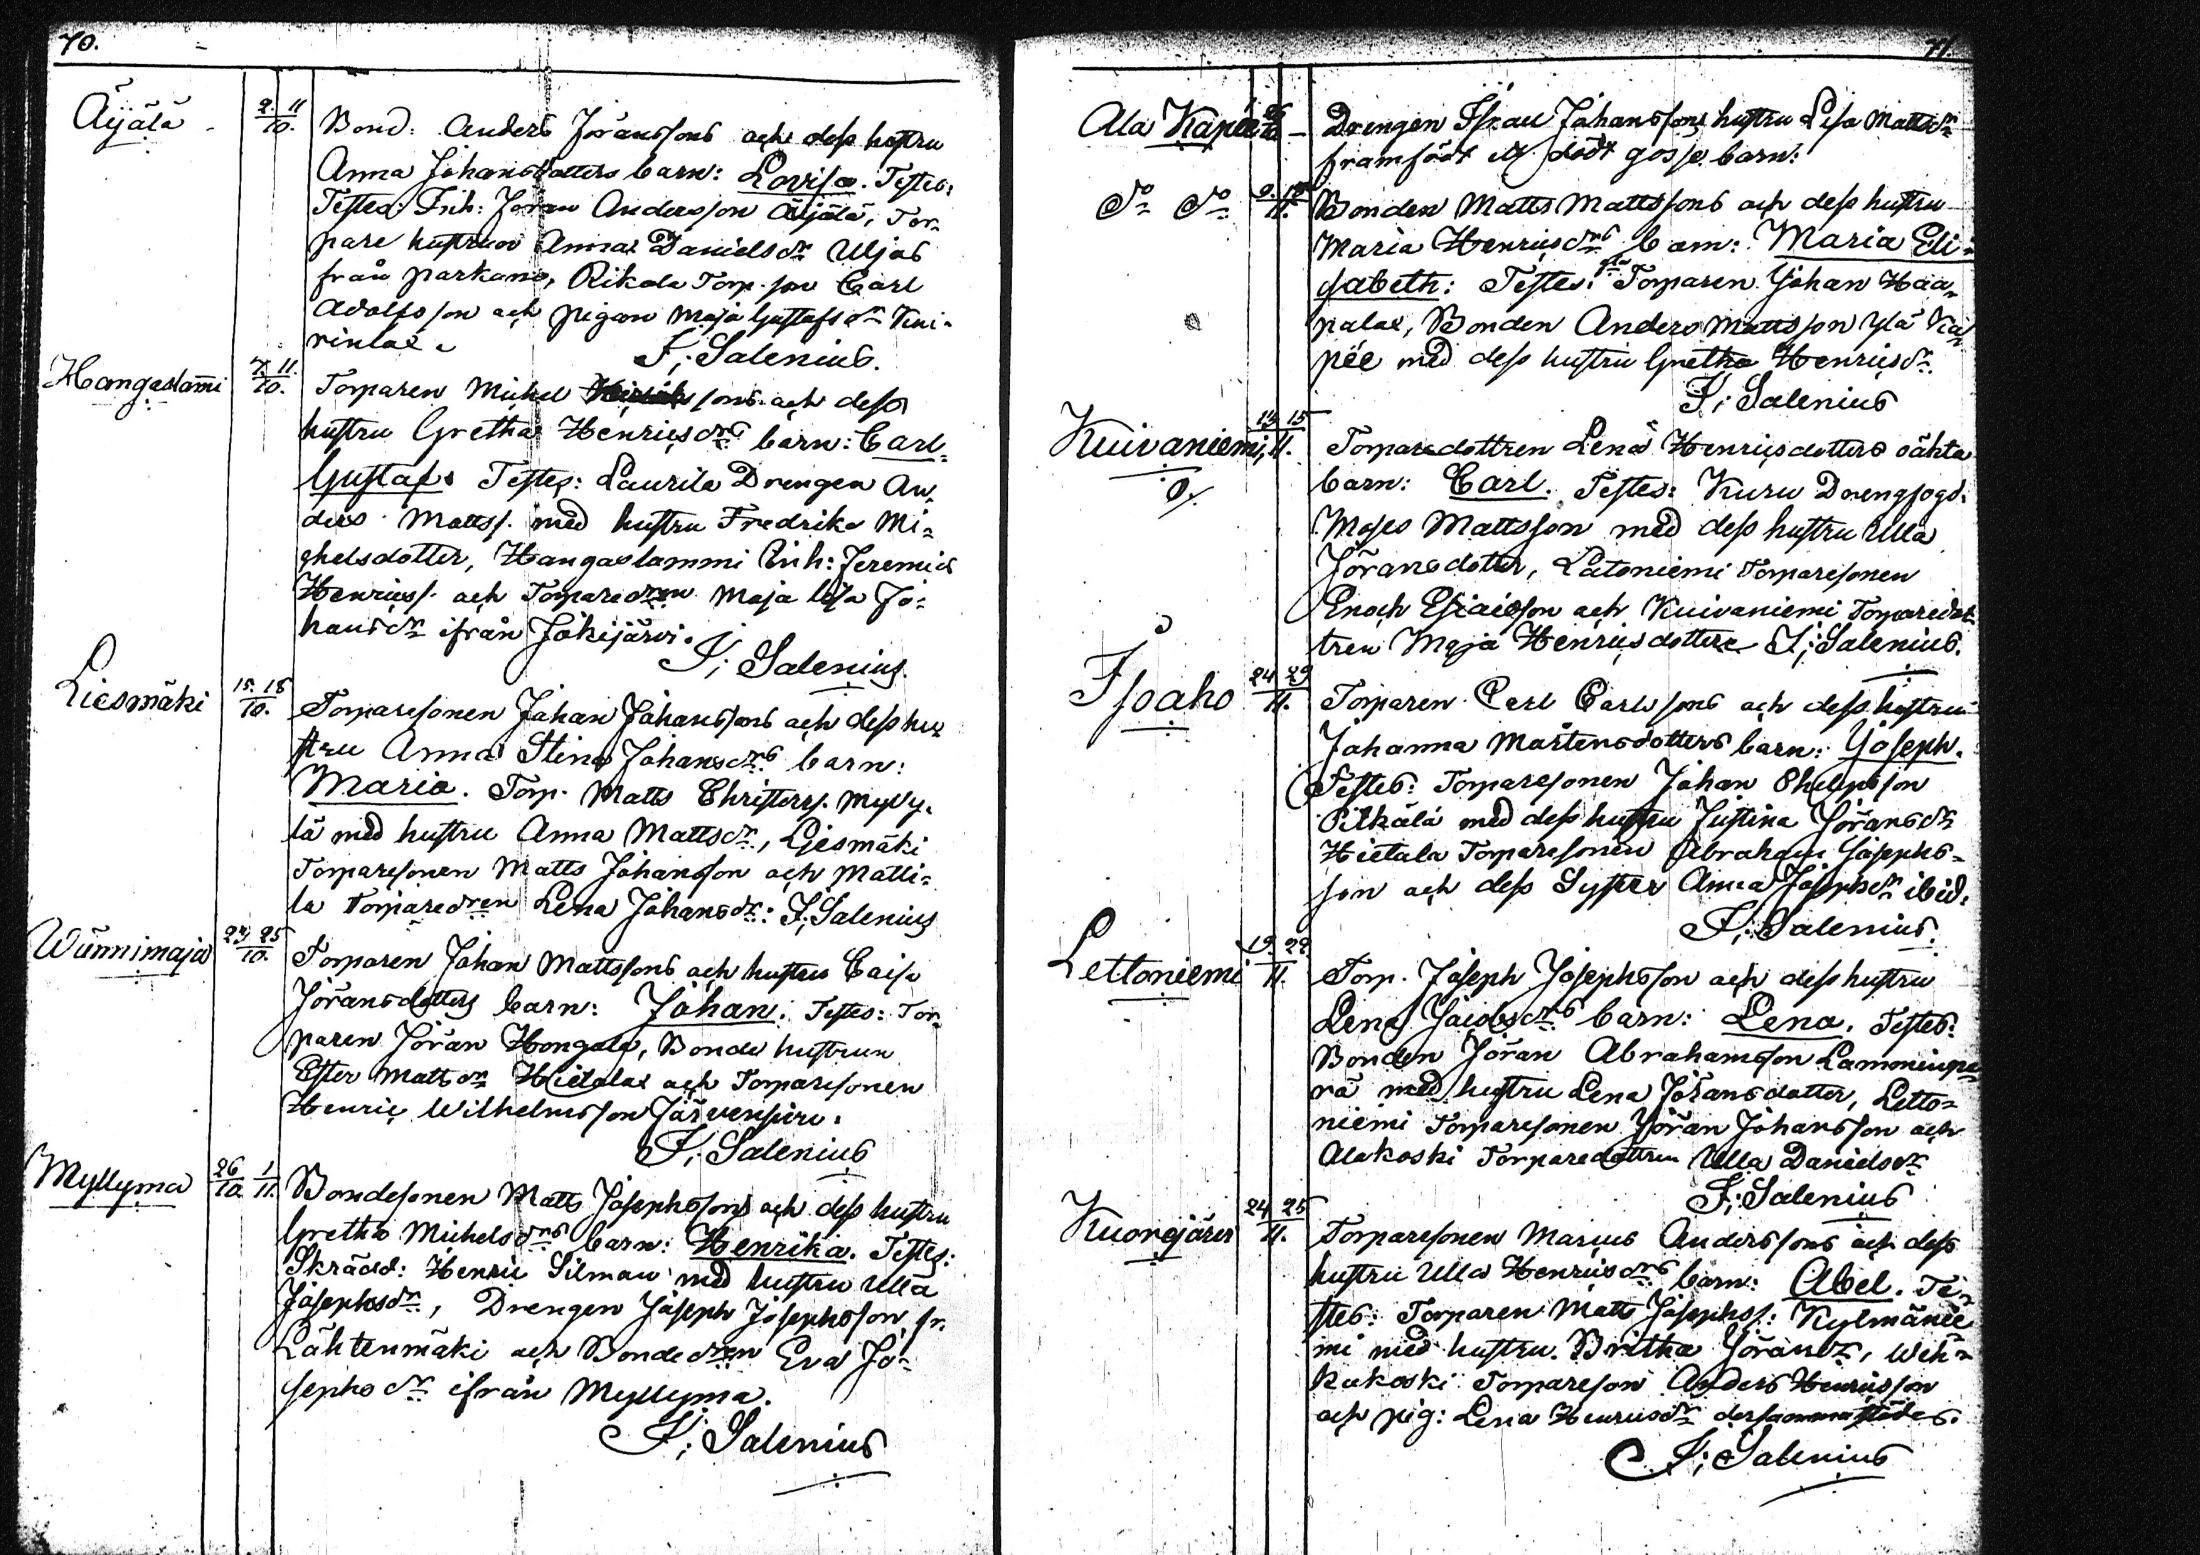 70.
Äijälä 2. 11 / 10. Bond: Anders Jöranssons och dess hustru
Anna Johansdotters barn: Lovisa. Testes:
Testes: Inh: Jöran Andersson Äijälä, Tor-
pare hustrun Anna Danielsdr Uljas
från parkano, Rikala Torp. son Carl
Adolfsson och pigan Maja Gustafsdr
J: Salenius.
Hangaslami 7. 11. / 10. Torparen Michel sons och dess
hustru Gretha Henricsdrs barn: Carl
Gustaf. Testes: Laurila Drengen An-
ders Mattss. med hustru Fredrika Mi-
chelsdotter, Hangaslammi Inh: Jeremias
Henricss. och Torparedren Maja Lisa Jo-
hansdr ifrån Jokijärvi.
J: Salenius.
Liesmäki 15. 18 / 10. Torparesonen Johan Johanssons och dess hu-
stru Anna Stina Johansdrs barn:
Maria. Torp. Matts Christerss. Mylly-
lä med hustru Anna Mattsdr, Liesmäki
Torparesonen Matts Johansson och Matti-
la Torparedren Lena Johansdr: J: Salenius
Wännimaja 24. 25 / 10. Torparen Johan Mattssons och hustrus Caisa
Jöransdotters barn: Johan. Testes: Tor-
paren Jöran Hongala, Bonde hustrun
Ester Mattsdr Hietala och Torparesonen
Henric Wilhelmsson Järvenpire.
J: Salenius
Myllyma 26 / 10. 1 / 11. Bondesonen Matts Josephssons och dess hustru
Gretha Michelsdrs barn: Henrika. Testes:
Skrädd: Henric Silman med hustru Ulla
Josephsdr, Drengen Joseph Josephsson fr.
Lähtenmäki och Bondedren Eva Jo-
sephsdr ifrån Myllyma.
J: Salenius
71.
Ala Käpee Drengen Isaac Johanssons hustru Lisa Mattsdr
framfödt ett dödt gosse barn:
Do Do 9. / 11. Bonden Matts Mattssons och dess hustru
Maria Henricsdrs barn: Maria Eli-
sabeth: Testes: Torparen Johan Haa-
pala, Bonden Anders Mattsson Ylä Kä-
pée med dess hustru Gretha Henricsdr.
J: Salenius
Kuivaniemi 14. 15 / 11. Torparedottren Lena Henricsdotters oähta
0/. barn: Carl. Testes: Kuru Drengfogd.
Moses Mattsson med dess hustru Ulla
Jöransdotter, Latoniemi Torparesonen
Enoch Esaiasson och Kuivaniemi Torparedot-
tren Maja Henricsdotter J: Salenius.
Isoaho 24 29 / 11. Torparen Carl Carlssons och dess hustru
Johanna Mårtensdotters barn: Joseph.
Testes: Torparesonen Johan Philipsson
Pitkälä med dess hustru Justina Jöransdr
Hietala Torparesonen Abraham Josephs-
son och dess Syster Anna Josephsdr ibid.
J: Salenius.
Lettoniemi 19. 22 / 11. Torp. Joseph Josephsson och dess hustru
Lena Jacobsdrs barn: Lena. Testes:
Bonden Jöran Abrahamsson Lammenpe-
rä med hustru Lena Jöransdotter, Letto-
niemi Torparesonen Jöran Johansson och
Alakoski Torparedottren Ulla Danielsdr
J: Salenius
Kuorejärvi 24 25 / 11. Torparesonen Marcus Anderssons och dess
hustru Ulla Henricsdrs barn: Abel. Te-
stes: Torparen Matts Josephss: Kylmänie-
mi med hustru Britha Jöransdr, Weh-
kakoski Torpareson Anders Henricsson
och pig: Lena Henricsdr dersammastädes.
J: Salenius